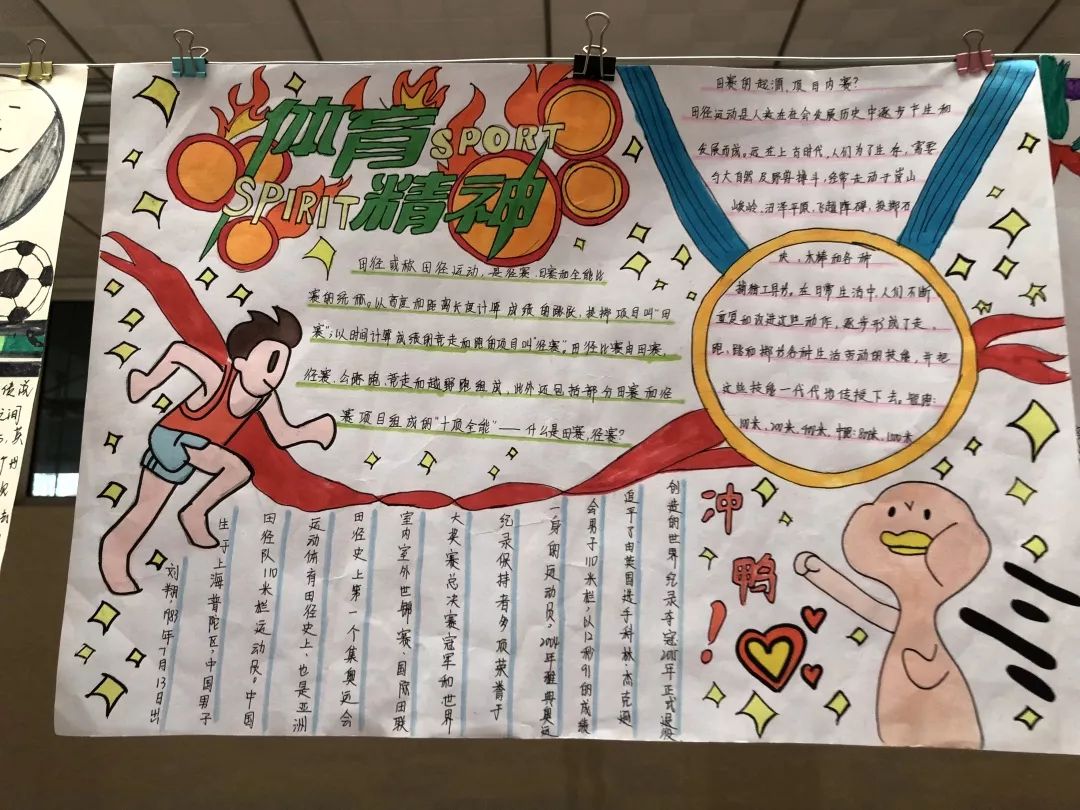 体育 SPORT
SPIRIT 精神
田径或称田径运动,是径赛、田赛和全能比
赛的统称。以高度和距离长度计算成绩的跳跃,投掷项目叫"田
赛";以时间计算成绩的竞走和跑的项目叫"径赛"。田径比赛由田赛
径赛、公路跑、竞走和越野跑组成,此外还包括部分田赛和径
赛项目组成的"十项全能"——什么是田赛,径赛?
田赛的起源,项目内赛?
田径运动是人类在社会发展历史中逐步产生和
发展而成。远在上古时代,人们为了生存,需要
与大自然及野兽搏斗,经常走动于高山
峻岭、沼泽平原,飞越障碍,投掷石
块、木棒和各种
捕猎工具等。在日常生活中,人们不断
重复和改进这些动作,逐步形成了走、
跑、跳和掷等各种生活劳动的技能,并把
这些技能一代代地传授下去。短跑:
100米、200米、400米,中跑:800米、1000米
刘翔1983年7月13日出
生于上海普陀区,中国男子
田径队110米栏运动员。中国
运动体育田径史上、也是亚洲
田径史上第一个集奥运会
室内室外世锦赛、国际田联
大奖赛总决赛冠军和世界
纪录保持者多项荣誉于
一身的运动员。2004年雅典奥运
会男子110米栏,以12秒91的成绩
追平了由英国选手科林·杰克逊
创造的世界纪录夺冠2015年正式退役
冲
鸭
!